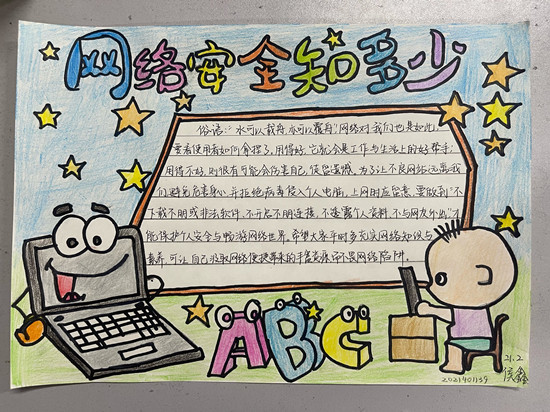 网络安全知多少
俗话:"水可以载舟,亦可以覆舟"!网络对我们也是如此,
要看使用者如何拿捏了,用得好,它就会是工作与生活上的好帮手;
用得不好,则很有可能会伤害自己,使留遗憾,为了让不良网络远离我
们避免危害身心,并拒绝病毒侵入个人电脑,上网时应留意,要做到"不
下载不明或非法软件,不开启不明连接,不透露个人资料,不与网友外出"才
能保护个人安全与畅游网络世界,希望大家平时多充实网络知识与
素养,可让自己汲取网络便捷带来的丰富资源而不畏网络陷阱。
ABC
21.2
侯鑫
2021401139